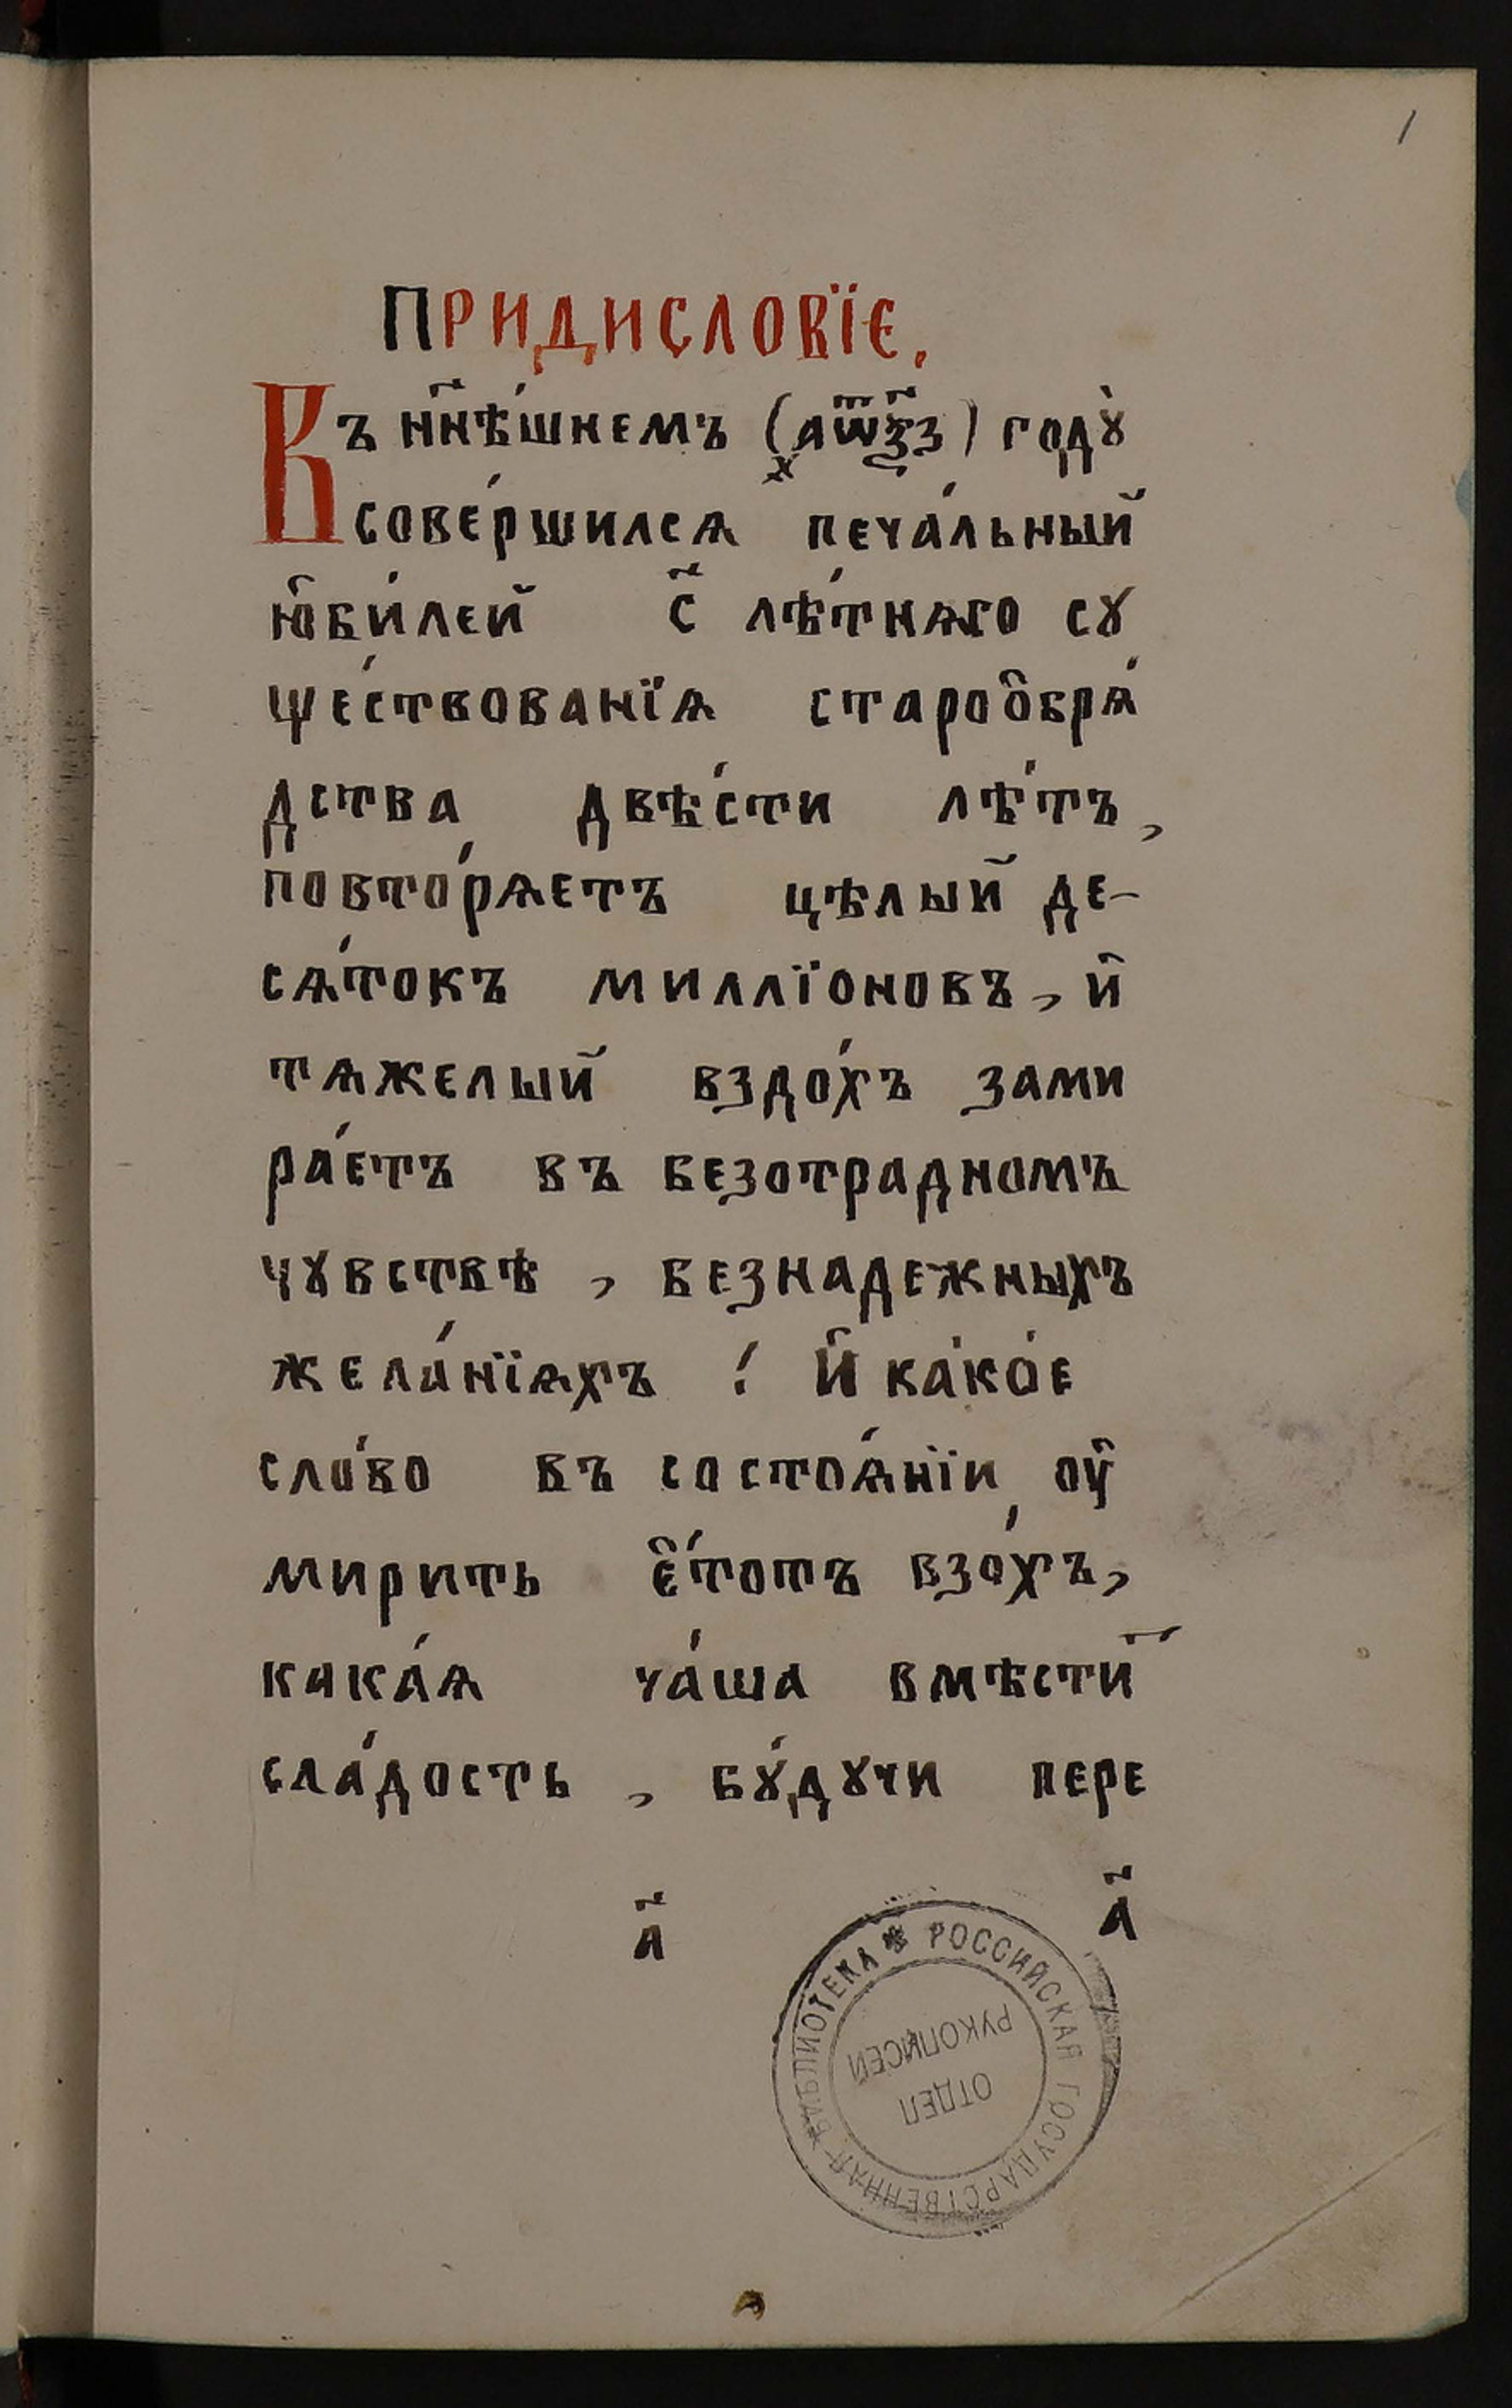 1
ПРИДИСЛОВЇЕ.
Въ н҃нѣ́шнемъ (҂аѿѯ҃з) годꙋ̀
сове́ршилсѧ печа́льный
ю҆би́лей с҃ лѣ́тнѧго сꙋ
ще́ствованїѧ староо҆брѧ́
дства двѣ́сти лѣ́тъ,
повто́рѧетъ цѣлый де-
сѧ́токъ миллїоновъ, и҆
тѧжелый вздо́хъ зами
ра́етъ въ безотрадномъ
чꙋвствѣ, безнадежныхъ
жела́нїѧхъ ! И҆ ка́ко́е
сло́во въ состоѧ́нїи оу҆
мирить е҆́тотъ взо́хъ,
кака́ѧ ча́ша вмѣсти̃
сла́дость, бꙋ́дꙋчи пере
а҃ а҃
РОССИЙСКАЯ ГОСУДАРСТВЕННАЯ БИБЛИОТЕКА
ОТДЕЛ
РУКОПИСЕЙ